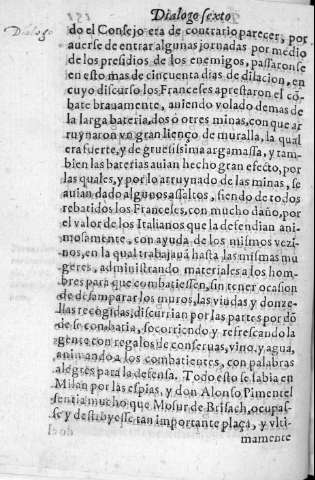 Dialogo sexto
Dialogo
do el Consejo era de contrario parecer, por
auerse de entrar algunas jornadas por medio
de los presidios de los enemigos, passaronse
en esto mas de cincuenta dias de dilacion, en
cuyo discurso los Franceses aprestaron el cõ-
bate brauamente, auiendo volado demas de
la larga bateria, dos ó otres minas, con que ar
ruynaron vn gran lienço de muralla, la qual
era fuerte, y de gruessissima argamassa, y tam-
bien las baterias auian hecho gran efecto, por
las quales, y por lo arruynado de las minas, se
auian dado algunos assaltos, siendo de todos
rebatidos los Franceses, con mucho daño, por
el valor de los Italianos que la defendian ani-
mosamente, con ayuda de los mismos vezi-
nos, en la qual trabajauã hasta las mismas mu
geres, administrando materiales a los hom-
bres para que combatiessen, sin tener ocasion
de desamparar los muros, las viudas y donze-
llas recogidas, discurrian por las partes por dõ
de se combatia, socorriendo y refrescando la
gente con regalos de conseruas, vino, y agua,
animando a los combatientes, con palabras
alegres para la defensa. Todo esto se sabia en
Milan por las espias, y don Alonso Pimentel
sentia mucho que Mosiur de Brisach, ocupas-
se y destruyesse tan importante plaça, y vlti-
mamente